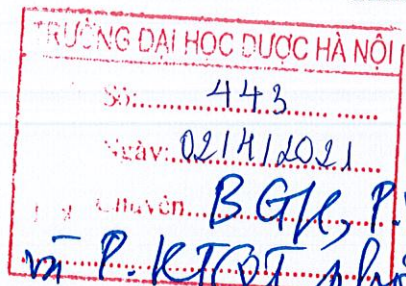 TRƯỜNG ĐẠI HỌC DƯỢC HÀ NỘI
Số:......443............
Ngày:02/4/2021
Chuyển....BGH, P.
và P. KTQT